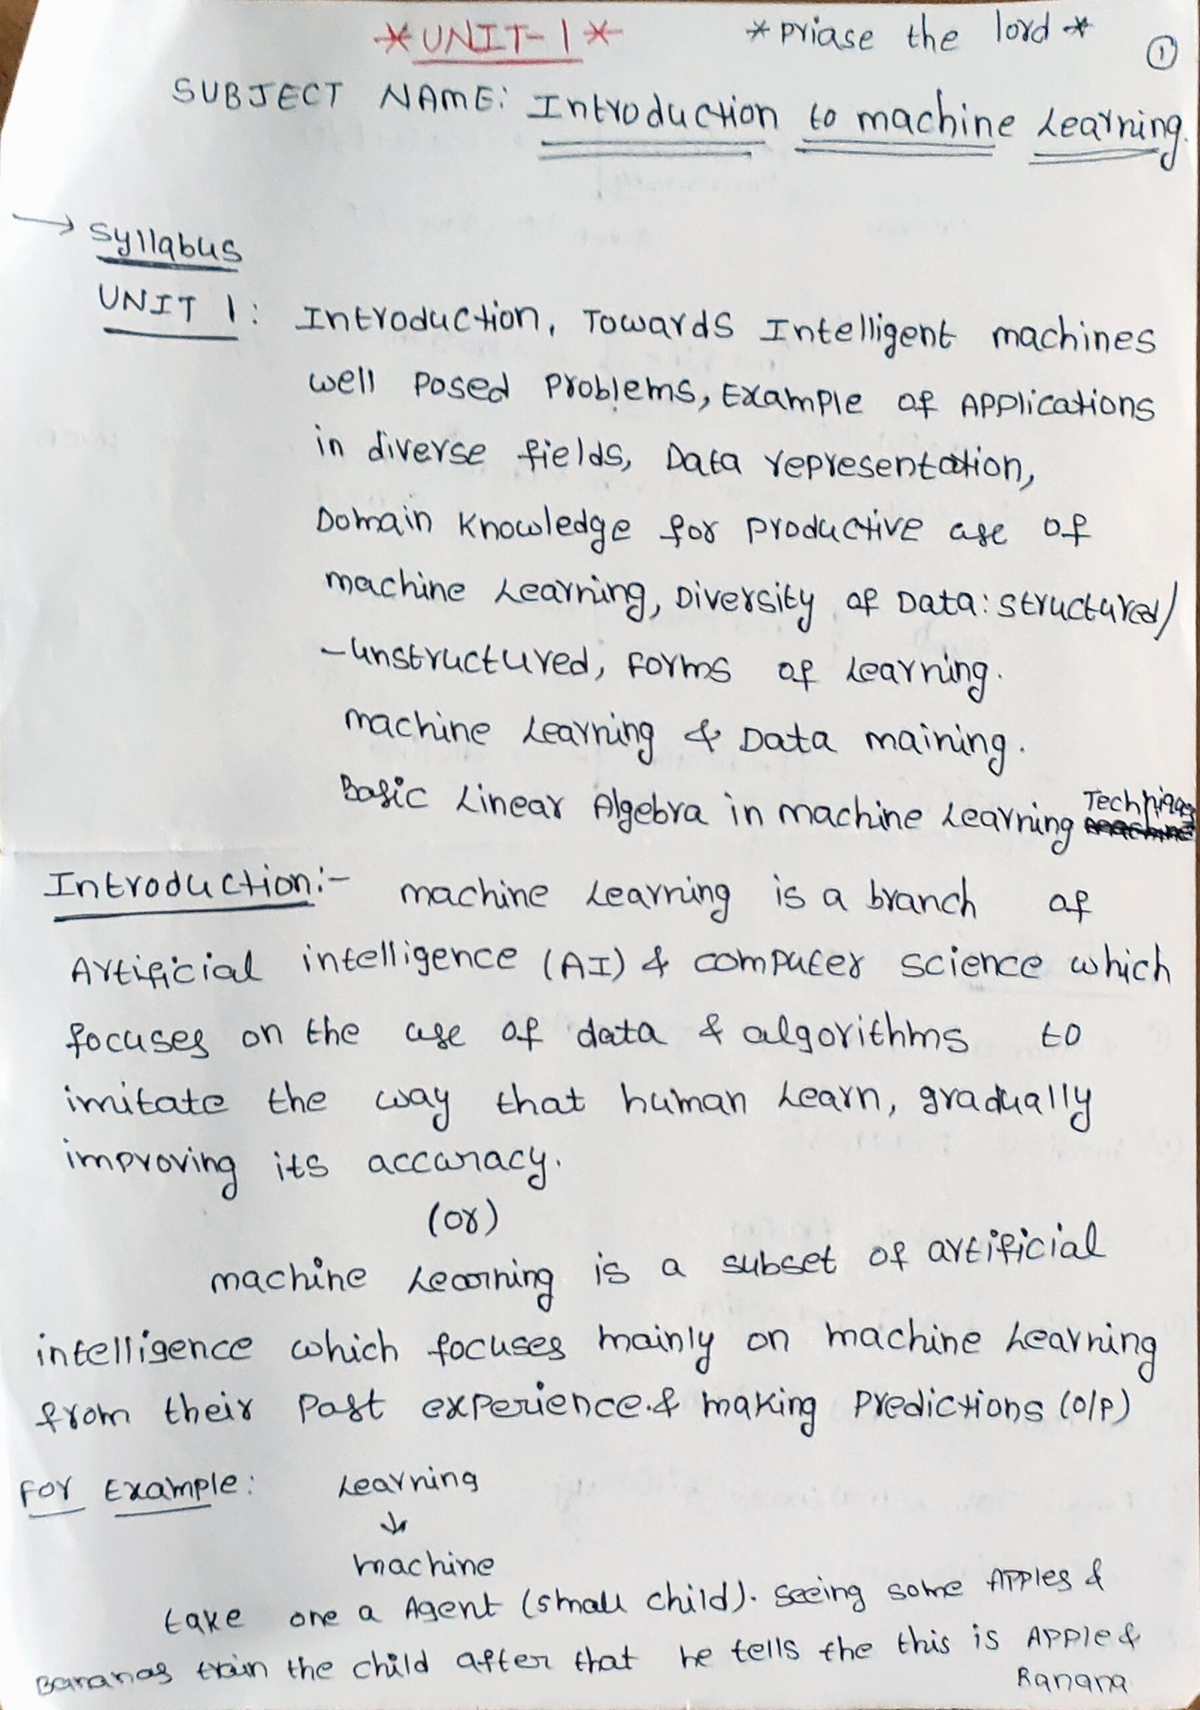 *UNIT-1* *Priase the lord* 1
SUBJECT NAME: Introduction to machine Learning.
→ Syllabus
UNIT 1: Introduction, Towards Intelligent machines
well Posed Problems, Example of Applications
in diverse fields, Data representation,
Domain Knowledge for Productive use of
machine Learning, Diversity of Data: structured/
-unstructured, Forms of Learning.
machine Learning & Data maining.
Basic Linear Algebra in machine Learning Techniques
Introduction:- machine Learning is a branch of
Artificial intelligence (AI) & computer science which
focuses on the use of data & algorithms to
imitate the way that human Learn, gradually
improving its accuracy.
(or)
machine Learning is a subset of artificial
intelligence which focuses mainly on machine Learning
from their Past experience.& making Predictions (o/p)
For Example: Learning
↓
machine
take one a Agent (small child). Seeing some Apples &
Bananas train the child after that he tells the this is Apple &
Banana